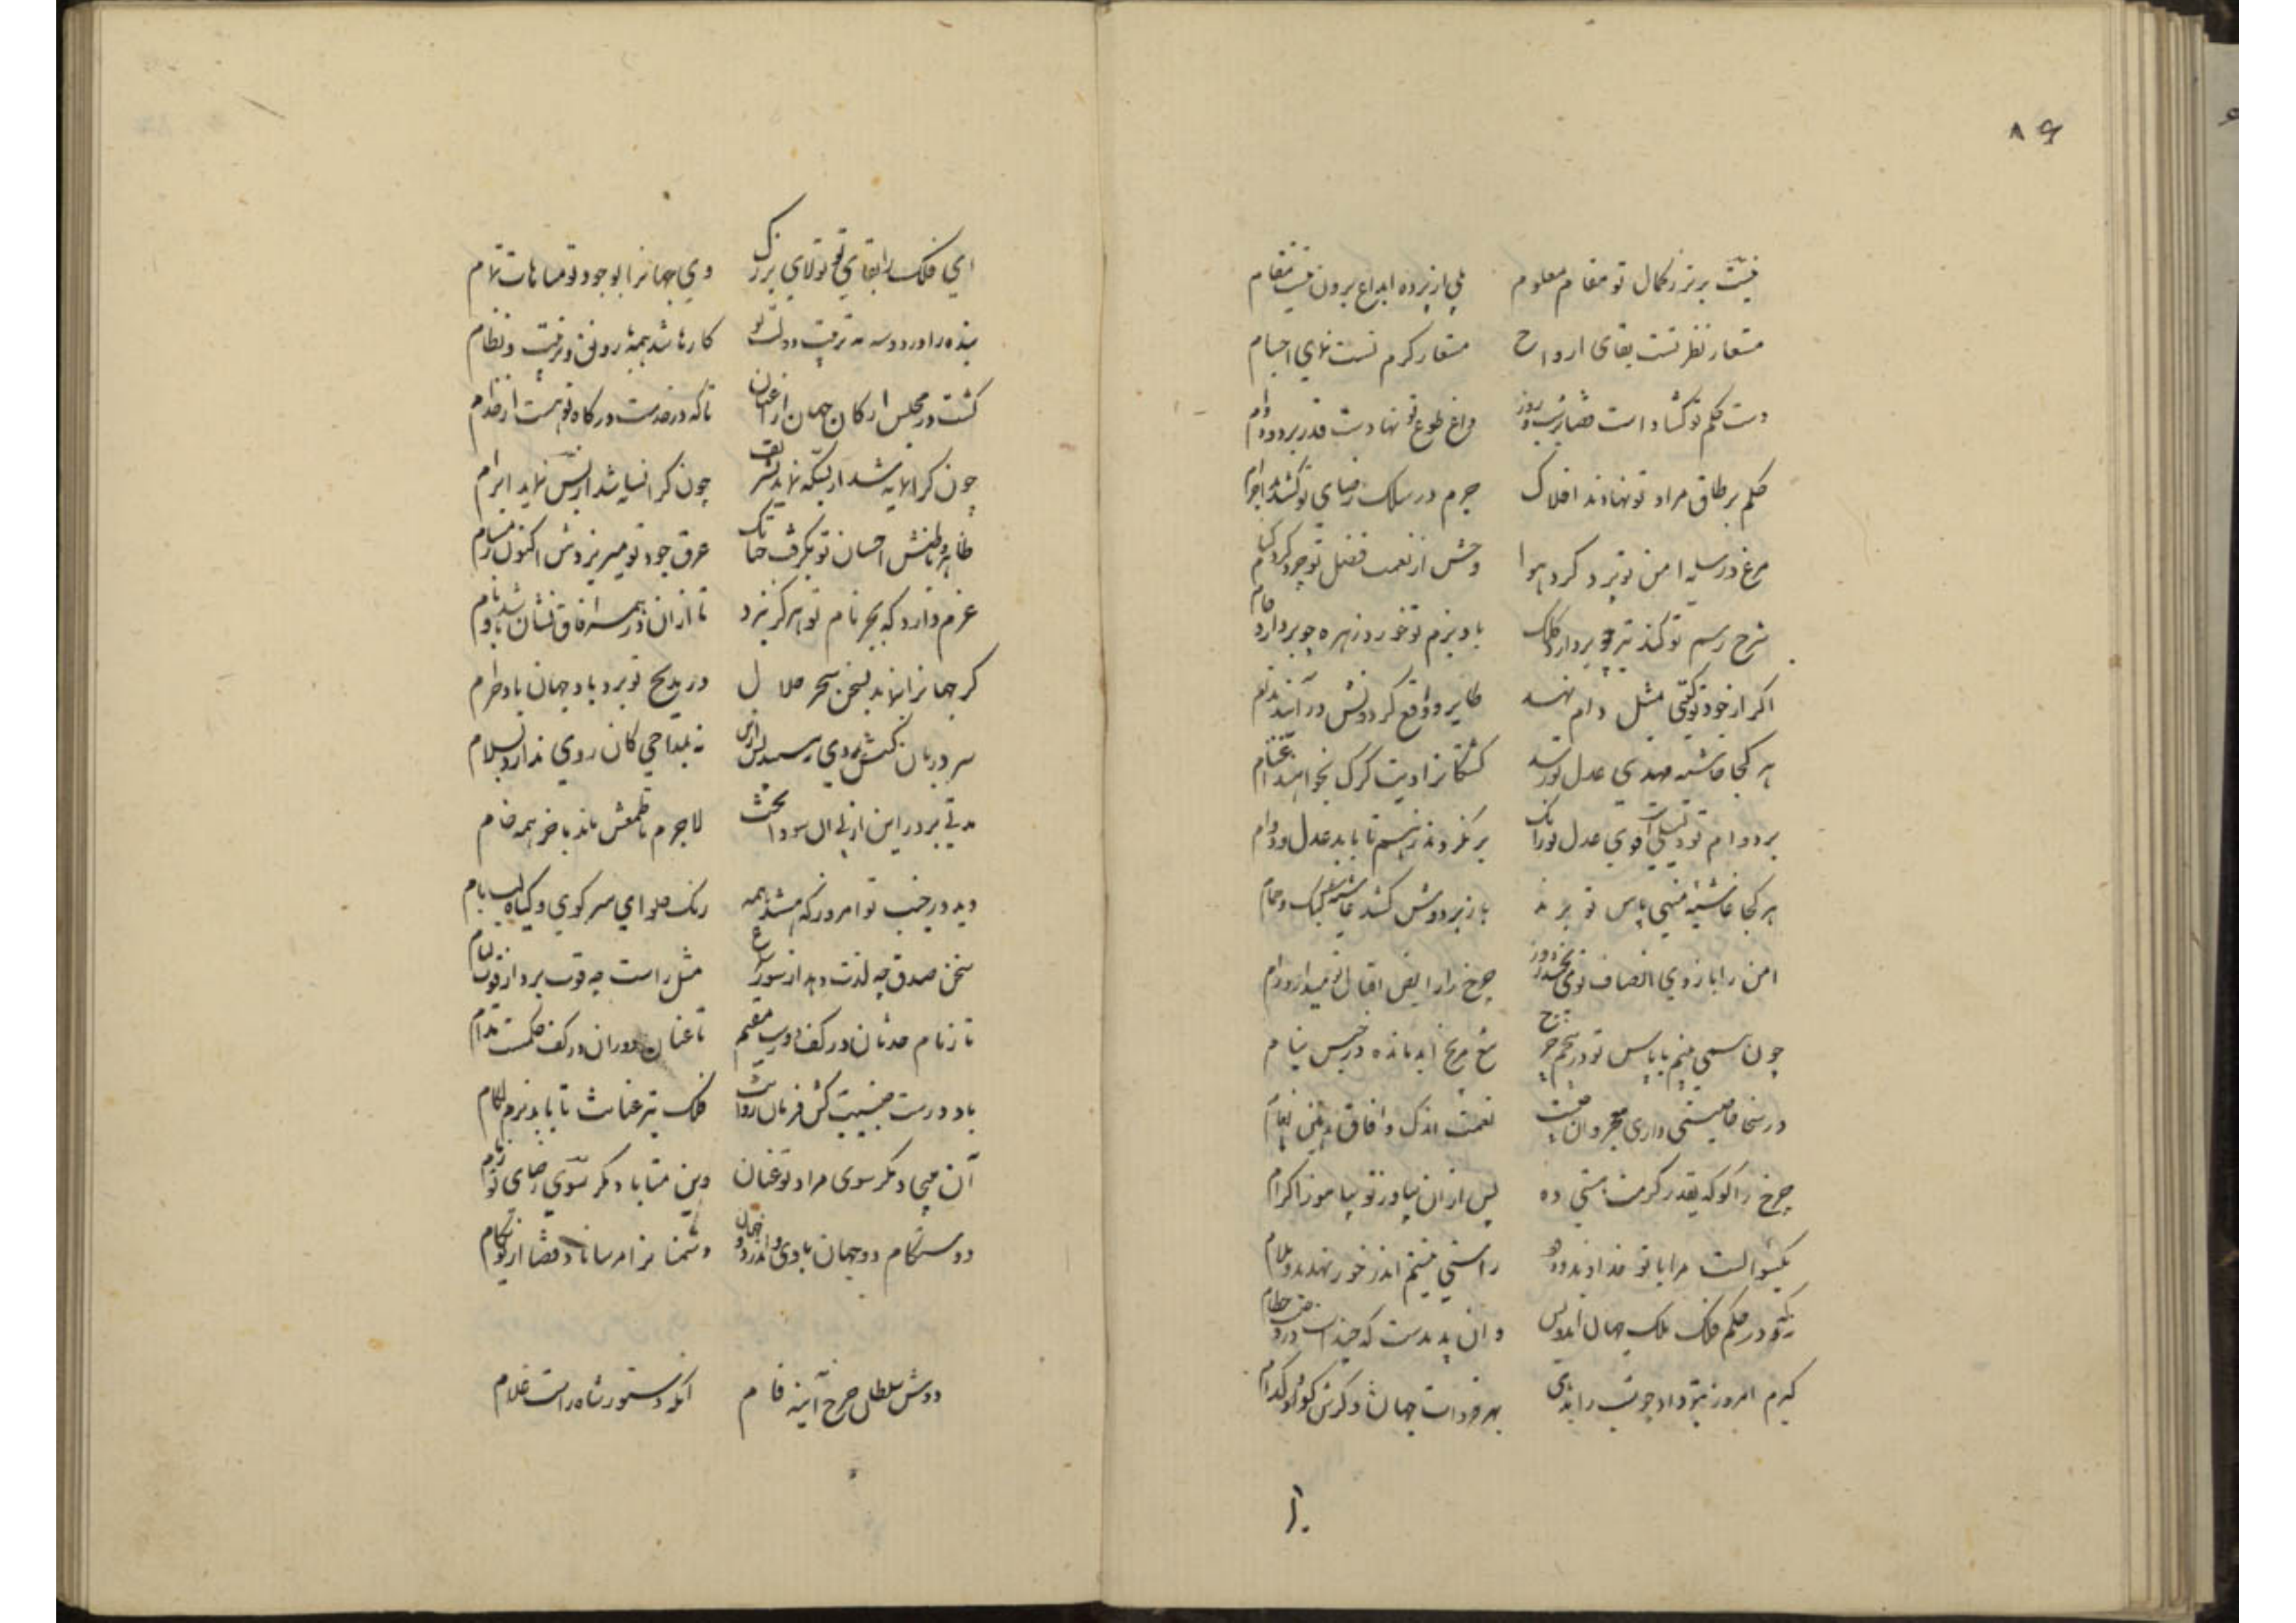 ۸۹
نیست برتر ز کمال تو مقام معلوم بلی از پرده ابداع برون نیست مقام
مستعار نظر تست بقای ارواح مستعار کرم تست نمای اجسام
دست حکم تو کشادست قضا بر شب و روز داغ طوع تو نهادست قدر بر دد و دام
حکم بر طاق مراد تو نهادند افلاک جرم در سلک رضای تو کشند اجرام
مرغ در سایه امن تو پرد کرد هوا وحش از نعمت فضل تو چرد کرد کنام
شرح رسم تو کند تیر چو بردارد کلک یاد بزم تو خورد زهره چو بردارد جام
اکر از جود تو کیتی مثل دام نهد طایر و واقع کردونش درآیند بدام
هر کجا حاشیه مهدی عدل تو رسد کشتکانرا دیت کرک بخواهند اغنام
بر دوام تو دلیلی است قوی عدل تو زانک برنکردند ز هم تا بابد عدل و دوام
هر کجا غاشیه منهی پاس تو برند باز بر دوش کشد غاشیه کبک و حمام
امن را بازوی انصاف تو می بخشد زور چرخ را رایض اقبال تو میدارد رام
چون سمی منهم با پاس تو در جحم تیغ مریخ ابد مانده در حبس نیام
در سخا خاصیتی داری وان خاصیت نعمت اندک و آفاق بدین نعمت
چرخ را کو که بقدر کرمت هستی ده پس از آن بیاور تو بیاموز اکرام
یک سوالست مرا با تو خداوند و درو راستی متهم اندر خور تهدید و ملام
نه تو در حکم فلک ملک جهان آنکس وان پدیدست که چندست درو حطام
کیرم امروز بتو داد چو شب را بدی بهر فردات جهان دکرش کو و کدام
ا.
ای فلک را بقای تو تولای بزرک وی جهانرا بوجود تو مباهات تمام
بنده را در دو سه مه تربیت دولت تو کارها شد همه با رونق و ترتیب و نظام
کشت در مجلس ارکان جهان از اعیان تا که در خدمت درکاه تو هست از خدام
چون کرانمایه شد از بسکه نمایند تشریف چون کرانسایه شد از بس نماید ابرام
ظاهر و باطنش احسان تو بکرفت چنانک عرق جود تو میریزدش اکنون ز مسام
عزم دارد که بجز نام تو هرکز نبرد تا از آن در همه آفاق نشان باشد و نام
کر جهانرا بنماید بسخن سحر حلال در مدیح تو برد باد جهان باد حرام
سر دربان بروی رسید نه بمداحی کان روی ندارد بسلام
مدتی بر در این از پی آن سودا پخت لاجرم با طمعش ماند با خر همه خام
دید در جنب تو امروز که میشد همه رنک حلوای سر کوی و کیاه لب بام
سخن صدق چه لذت دهد از سوز سماع مثل راست چه قوت برد از قوت لیام
تا زمام حدثان در کف دور مقیم تا عنان دوران در کف حکمست مدام
باد در دست جنیبت کش فرمان روات فلک تیز عنانت تا بابد نرم لکام
آن مپیچاد مکر سوی مراد تو عنان وین متاباد مکر سوی رضای تو زمام
دوستکام دو جهان بادی و اندر دو جهان دشمنانرا مرساناد قضا از تو بکام
دوش سلطان چرخ آینه فام آنکه دستور شاه راست غلام